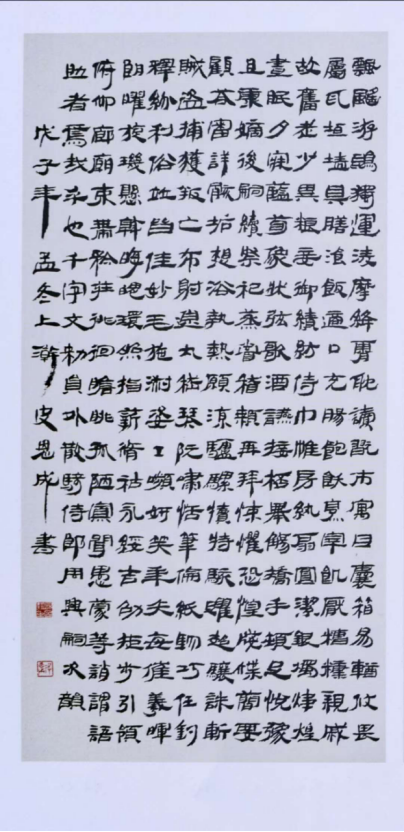 飄颻游鵾獨運凌摩絳霄耽讀翫市寓目囊箱易輶攸畏
屬耳垣墻具膳飡飯適口充腸飽飫烹宰飢厭糟糠親戚
故舊老少異糧妾御績紡侍巾帷房紈扇圓潔銀燭煒煌
晝眠夕寐藍筍象牀弦歌酒讌接杯舉觴矯手頓足悅豫
且康嫡後嗣續祭祀蒸嘗稽顙再拜悚懼恐惶牋牒簡要
顧答審詳骸垢想浴執熱願涼驢騾犢特駭躍超驤誅斬
賊盜捕獲叛亡布射遼丸嵇琴阮嘯恬筆倫紙鈞巧任釣
釋紛利俗竝皆佳妙毛施淑姿工嚬妍笑年矢每催羲暉
朗曜旋璣懸斡晦魄環照指薪脩祜永綏吉劭矩步引領
俯仰廊廟束帶矜莊徘徊瞻眺孤陋寡聞愚蒙等誚謂語
助者焉哉乎也千字文勑員外散騎侍郎周興嗣次韻
戊子年孟冬上澣皮思成書